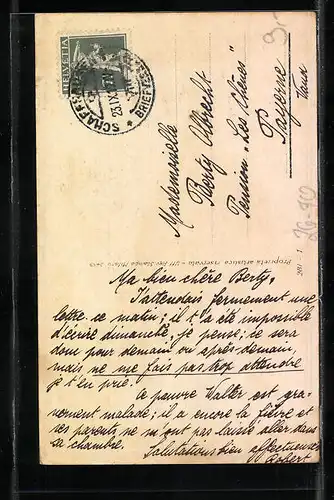 HELVETIA
SCHAFFHAUSEN
BRIEFVERS
23.IX.
Mademoiselle
Berty Albrecht
Pension "Les Chênes"
Payerne
Vaud
Proprietà artistica riservata
281 - 1
Ma bien chère Berty,
J'attendais fermement une
lettre ce matin; il t'a été impossible
d'écrire dimanche, je pense; ce sera
donc pour demain ou après-demain,
mais ne me fais pas trop attendre
je t'en prie.
Ce pauvre Walter est gra-
vement malade; il a encore la fièvre et
ses parents ne m'ont pas laissé aller dans
sa chambre.
Salutations bien affectueuses
Robert